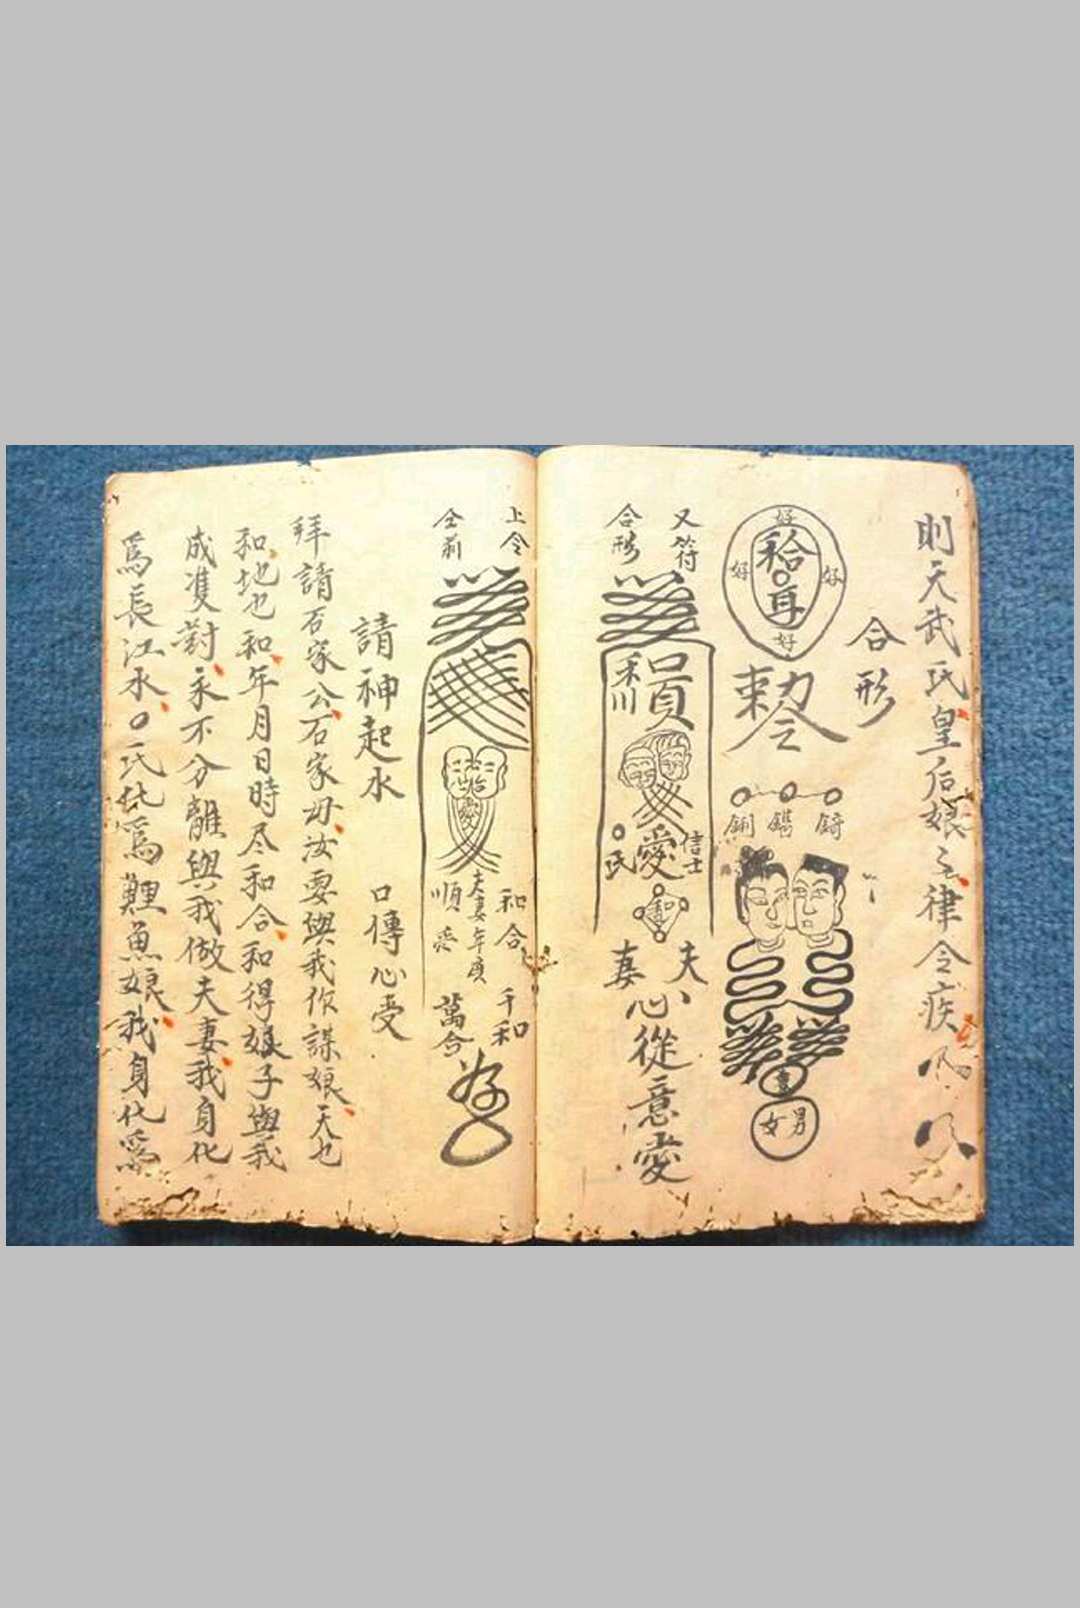 則天武氏皇后娘之律令疾
合形
好
好 好
好
敕令
男女
又符
合形
愛
信士
氏
夫
妻
心從意愛
上令
全前
和合
夫妻年庚
順
千和
萬合
請神起水
口傳心受
拜請石家公石家母汝要與我作謀娘天也
和地也和年月日時尽和合和得娘子與我
成双對永不分離與我做夫妻我身化
為長江水〇氏化為鯉魚娘我身化為